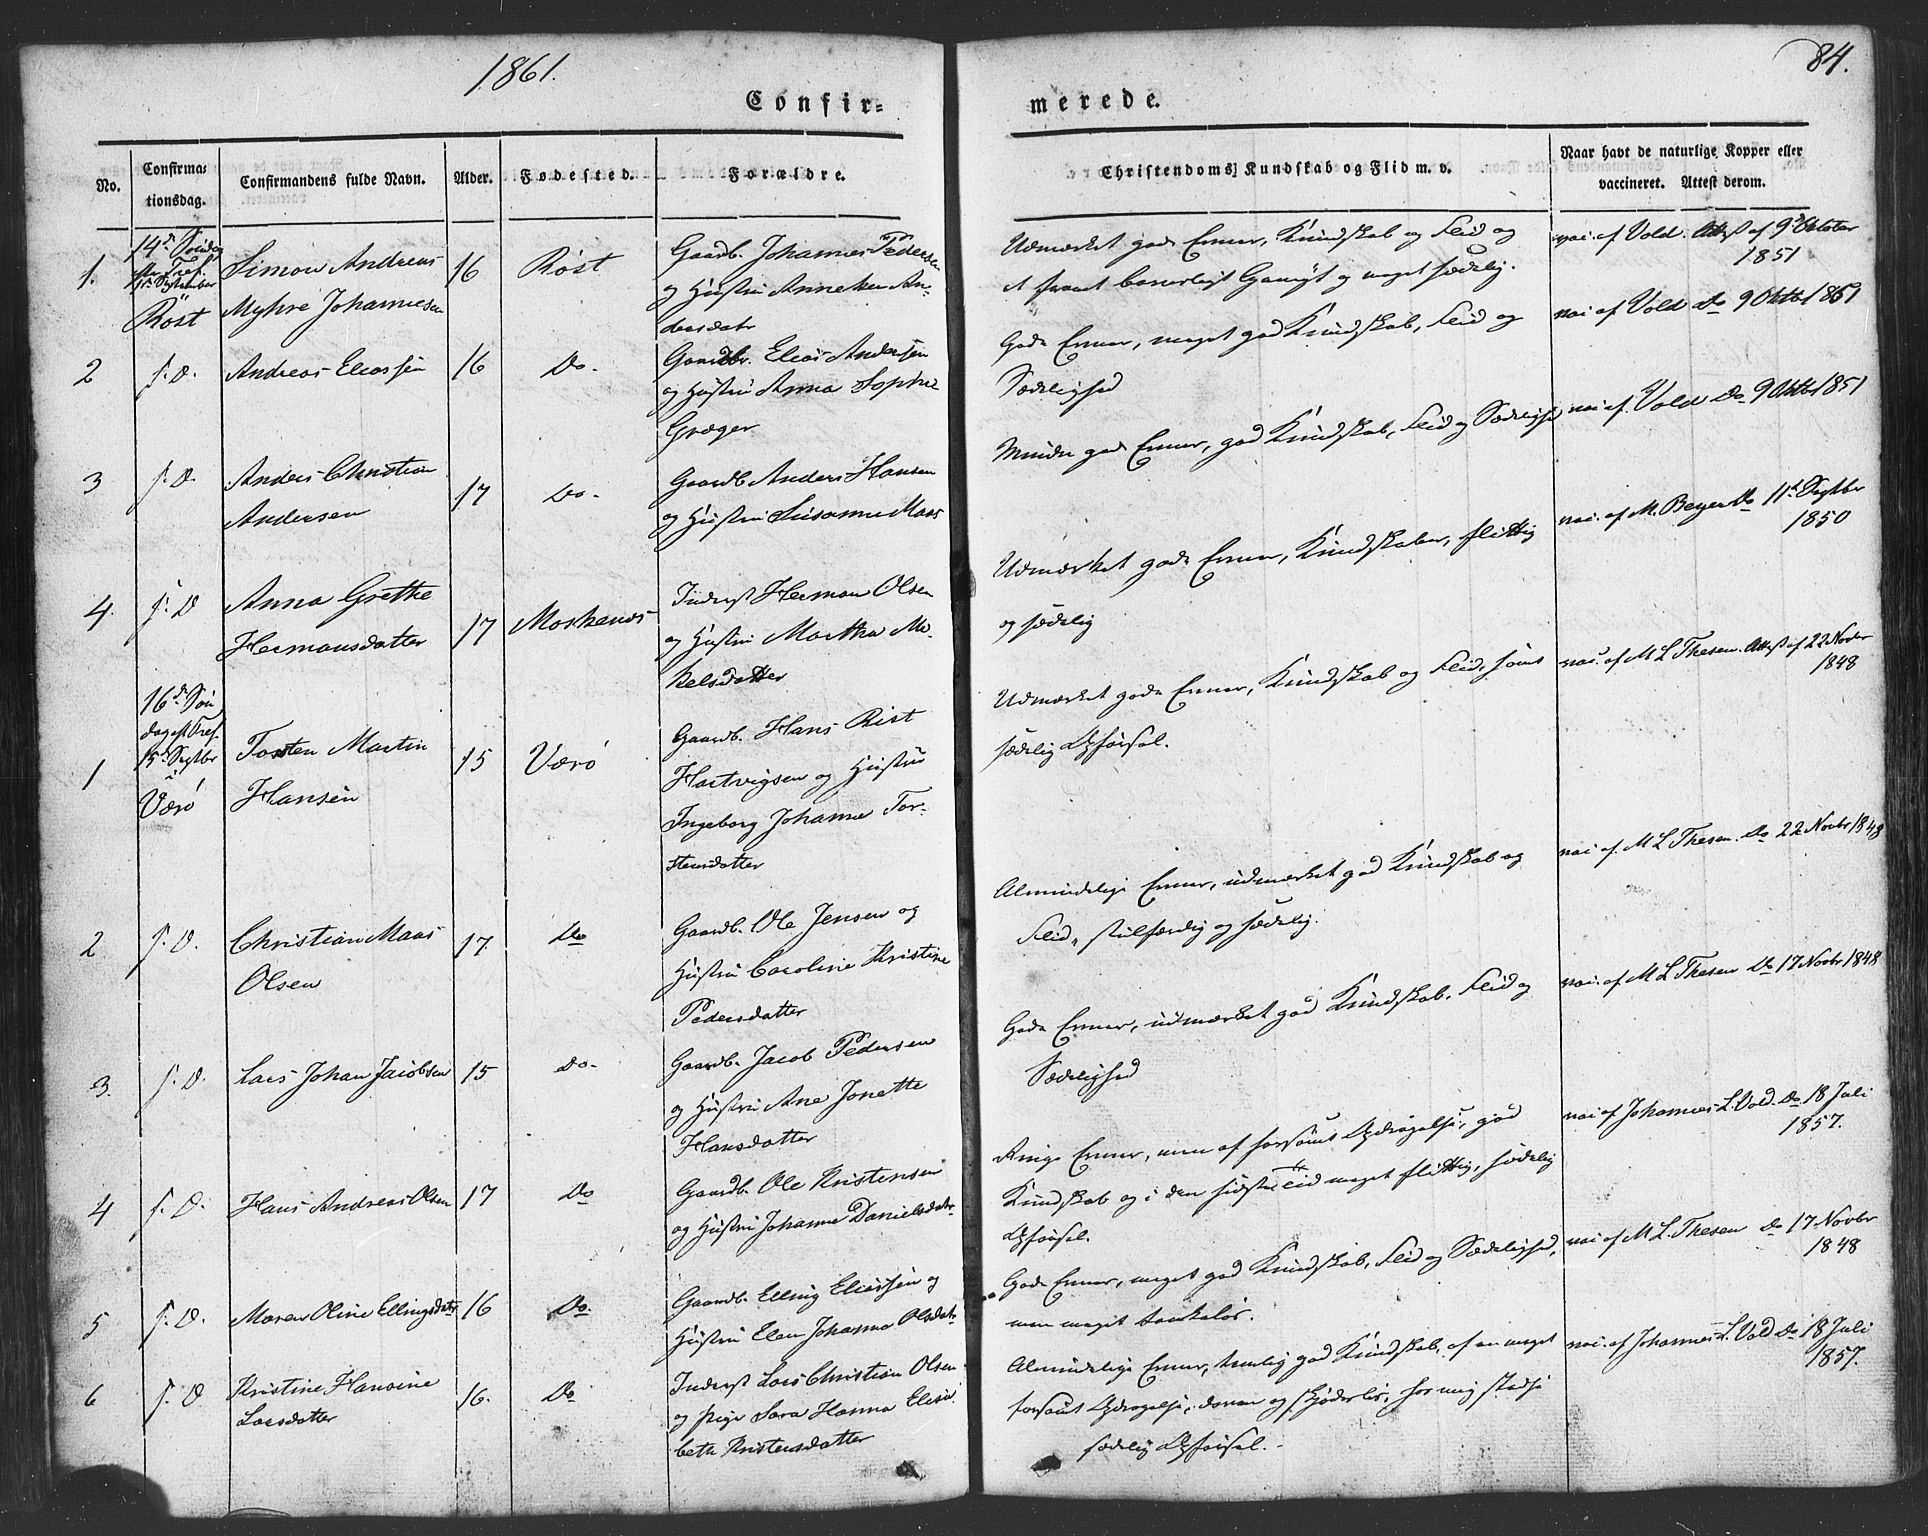 1861.
84.
Confir=
merede.
No.
Confirma=
tionsdag.
Confirmandens fulde Navn.
Alder.
Fødested.
Forældre.
Christendoms Kundskab og Flid m. v.
Naar havt de naturlige Kopper eller
vaccineret. Attest derom.
1.
14de Søndag
eft. Tref.
1ste September
Röst
Simon Andreas
Myhre Johannesen
16
Röst
Gaardb. Johannes Pedersen
og Hustru Anneken An-
dersdatr
Udmærket gode Evner, Kundskab og Flid og
meget sædelig.
vac. af Vold. Attest af 9de October
1851
2
s. D.
Andreas Eliassen
16
Do.
Gaardbr. Elias Andersen
og Hustru Anna Sophie
Grøger
Gode Evner, meget god Kundskab, Flid og
Sædelighed
vac. af Vold Do 9 Octbr 1851
3
s. D.
Anders Christian
Andersen
17
Do.
Gaardb. Anders Hansen
og Hustru Susanne Maas
Mindre gode Evner, god Kundskab, Flid og Sædelighed
vac. af Vold Do 9 Octbr 1851
4.
s. D
Anna Grethe
Hermansdatter
17
Moskenæs
Inderst Herman Olsen
og Hustru Martha Mi-
kelsdatter
Udmærket gode Evner, Kundskaber, flittig
og sædelig
vac. af M. Beyer Do 11te Septbr
1850
1
16de Søn
dag eft. Tref.
15de Septbr
i
Værö
Torsten Martin
Hansen
15
Værö
Gaardb. Hans Rist
Hartvigsen og Hustru
Ingeborg Johanne Tor-
stensdatter
Udmærket gode Evner, Kundskab og Flid, samt
sædelig Opførsel.
vac. af M L Thesen. Attest af 22 Novbr
1848
2
s. D.
Christian Maas
Olsen
17.
Do
Gaardb. Ole Jensen og
Hustru Caroline Kristine
Pedersdatter
Almindelige Evner, udmærket god Kundskab og
Flid, stilfærdig og sædelig.
vac. af M L Thesen. Do 22 Novbr 1848
3.
s. D.
Lars Johan Jacobsen
15
Do.
Gaardb. Jacob Pedersen
og Hustru Ane Jonette
Hansdatter
Gode Evner, udmærket god Kundskab, Flid og
Sædelighed
vac. af M L Thesen Do 17 Novbr 1848
4
s. D.
Hans Andreas Olsen
17
Do
Gaardb. Ole Kristensen
og Hustru Johanne Danielsdatr
Ringe Evner, men af forsømt Opdragelse, god
Kundskab og i den sidste Tid meget flittig, sædelig
Opførsel.
vac af Johannes L. Vold. Do 18 Juli
1857.
5
s. D.
Maren Oline Ellingsdatr
16
Do.
Gaardb. Elling Eliassen og
Hustru Elen Johanna Olsdatr
Gode Evner, meget god Kundskab, Flid og Sædelighed,
men meget tankeløs.
vac. af M L. Thesen Do 17 Novbr
1848
6
s. D
Kristine Hansine
Larsdatter
16.
Do
Inderst Lars Christian Olsen
og Pige Sara Hanna Elisa-
beth Kristensdatter
Almindelige Evner, temlig god Kundskab, af en meget
forsømt Opdragelse, doven og skjødesløs, for mig stedse
sædelig Opførsel.
vac. af Johannes L. Vold Do 18 Juli
1857.